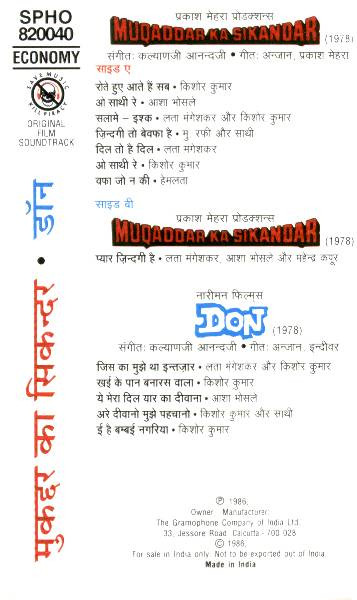 SPHO
820040
ECONOMY
SAVE MUSIC
KILL PIRACY
ORIGINAL
FILM
SOUNDTRACK
मुकद्दर का सिकन्दर • डॉन
प्रकाश मेहरा प्रोडक्शन्स
MUQADDAR KA SIKANDAR
(1978)
संगीतः कल्याणजी आनन्दजी • गीतः अन्जान, प्रकाश मेहरा
साइड ए
रोते हुए आते हैं सब • किशोर कुमार
ओ साथी रे • आशा भोसले
सलामे – इश्क • लता मंगेशकर और किशोर कुमार
ज़िन्दगी तो बेवफा है • मु. रफी और साथी
दिल तो है दिल • लता मंगेशकर
ओ साथी रे • किशोर कुमार
वफा जो न की • हेमलता
साइड बी
प्रकाश मेहरा प्रोडक्शन्स
MUQADDAR KA SIKANDAR
(1978)
प्यार ज़िन्दगी है • लता मंगेशकर, आशा भोसले और महेन्द्र कपूर
नारीमन फिल्मस
DON
(1978)
संगीतः कल्याणजी आनन्दजी • गीतः अन्जान, इन्दीवर
जिस का मुझे था इन्तज़ार • लता मंगेशकर और किशोर कुमार
खई के पान बनारस वाला • किशोर कुमार
ये मेरा दिल यार का दीवाना • आशा भोसले
अरे दीवानो मुझे पहचानो • किशोर कुमार और साथी
ई है बम्बई नगरिया • किशोर कुमार
℗ 1986,
Owner Manufacturer:
The Gramophone Company of India Ltd.
33, Jessore Road, Calcutta - 700 028
© 1986,
For sale in India only. Not to be exported out of India.
Made in India